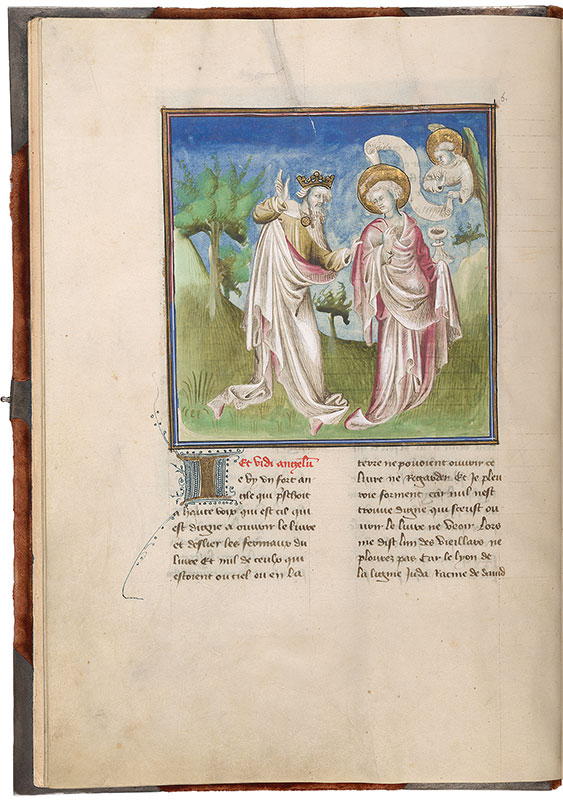 6.
Et vidi angelu
Ie vy un fort an
gle qui
a haute voix qui est cils qui
est digne a ouvrir le livre
et deslier les fermaux du
livre Et nul de ceulx qui
estoient ou ciel ou en la
terre ne povoient ouvrir ce
livre ne Regarder Et je plou
roie forment car nul nest
trouve digne qui sceust ou
vrir le livre ne veoir Lors
me dist lun des vieillars ne
plourez pas Car le lyon de
la lignie Juda Racine de david